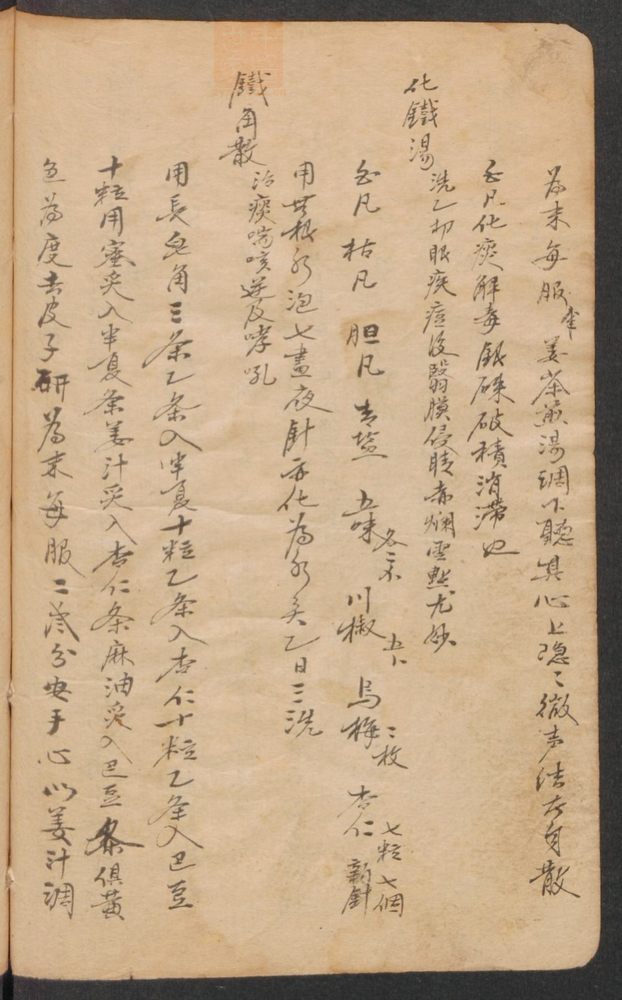 為末每服半 姜茶煎湯調下聽其心上隱々微声結者自散
白凡化痰解毒 銀硃破積消滯也
化鐵湯 洗乙切眼疾痘後翳膜侵睛赤爛雲點尤妙
白凡 枯凡 胆凡 青塩 五味 各二不 川椒 五下 烏梅 二枚 杏仁 七粒 新針 七個
用井水泡七晝夜針亦化為水矣乙日三洗
鐵角散 治痰喘咳逆及哮吼
用長皂角三条乙条入半夏十粒乙条入杏仁十粒乙条入巴豆
十粒用蜜炙入半夏条姜汁炙入杏仁条麻油炙入巴豆条俱黃
色為度去皮子研為末每服二三分安手心以姜汁調